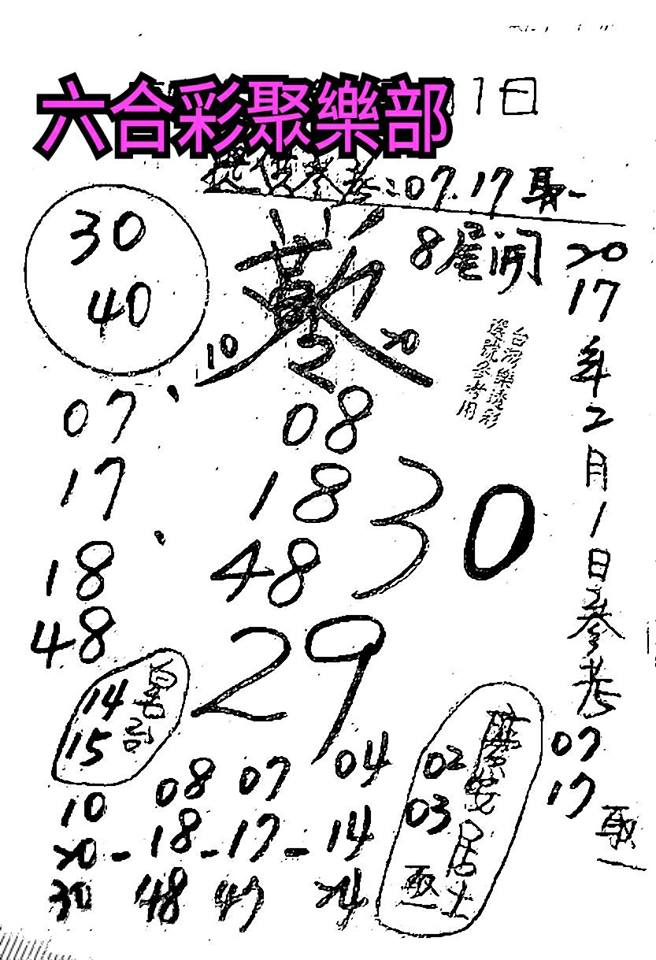 六合彩聚樂部
1日
提供參考:07.17取一
8尾開
30
40
10
20
台灣樂透彩
選號參考用
2017年2月1日參考
07
17
取一
07
17
18
48
08
18
48
30
29
14
15
10 08 07 04
20-18-17-14
30 48 47 24
慶安居士
02
03
取一